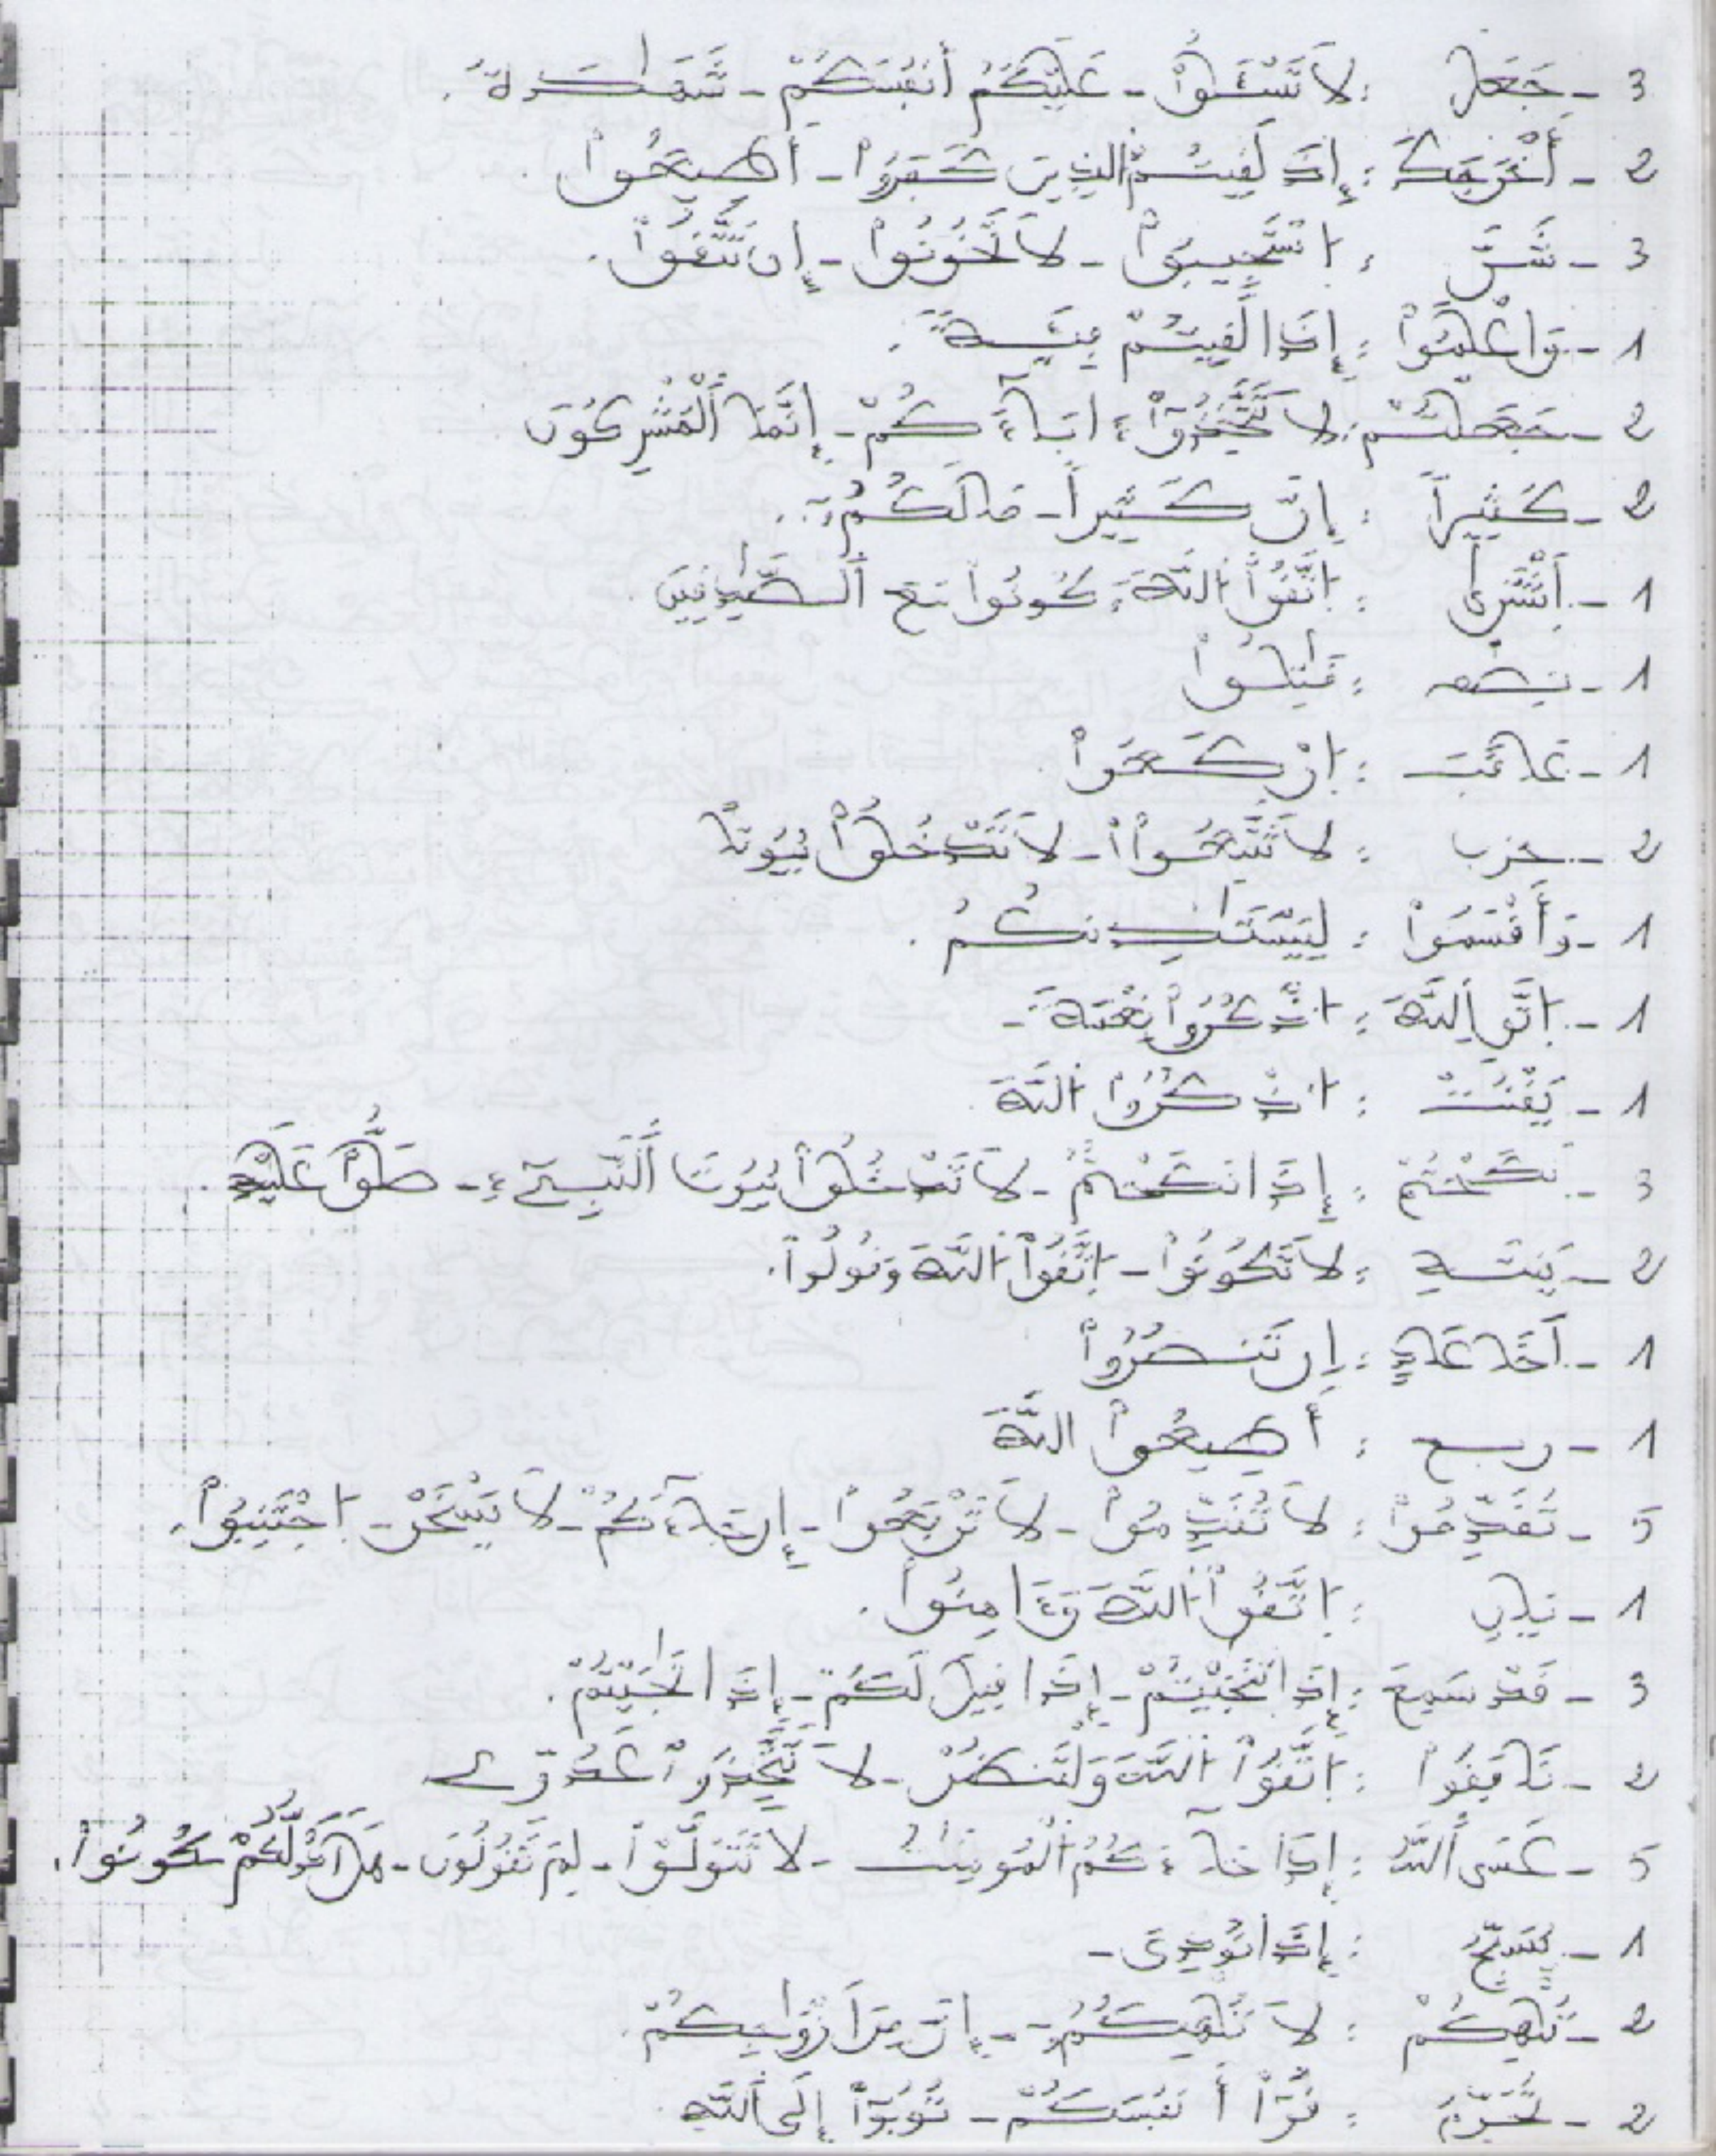 3 - جَعَلَ : لَا تَسْـَٔلُواْ - عَلَيْكُمُ أَنفُسَكُمْ - شَهَـٰدَةُ .
2 - أَخْرَجَكَ : إِذَا لَقِيتُمُ الذِينَ كَفَرُواْ - أَطِيعُواْ
3 - شَرَّ : اِسْتَجِيبُواْ - لَا تَخُونُواْ - إِن تَتَّقُواْ .
1 - وَاعْلَمُواْ : إِذَا لَقِيتُمْ فِئَةً .
2 - جَعَلْتُمْ : لَا تَتَّخِذُوٓاْ ءَابَآءَكُمْ - إِنَّمَا اَلْمُشْرِكُونَ
2 - كَثِيراً : إِنَّ كَثِيراً - مَا لَكُمُۥٓ .
1 - اَشْتَرَىٰ : اِتَّقُواْ اللَّهَ وَكُونُواْ مَعَ اَلصَّـٰدِقِينَ .
1 - نصف : قَـٰتِلُواْ
1 - غَائبَ : اِرْكَعُواْ
2 - حزب : لَا تَتَّبِعُواْ - لَا تَدْخُلُواْ بُيُوتاً
1 - وَأَقْسَمُواْ : لِيَسْتَـٰذِنكُمُ .
1 - اِتَّقِ اِللَّهَ : اذْكُرُواْ نِعْمَةَ -
1 - يَقْنُتْ : اذْكُرُواْ اللَّهَ
3 - نَكَحْتُمْ : إِذَا نَكَحْتُمُ - لَا تَدْخُلُواْ بُيُوتَ اَلنَّبِـيٓءِ - صَلُّواْ عَلَيْهِ
2 - يَنتَهِ : لَا تَكُونُواْ - اِتَّقُواْ اللَّهَ وَقُولُواْ .
1 - أَخَا عَادٍ : إِن تَنصُرُواْ
1 - ربع : أَطِيعُواْ اللَّهَ
5 - تُقَدِّمُواْ : لَا تُقَدِّمُواْ - لَا تَرْفَعُواْ - إِن جَآءَكُمْ - لَا يَسْخَرْ - اِجْتَنِبُواْ .
1 - : اِتَّقُواْ اللَّهَ وَءَامِنُواْ .
3 - قَدْ سَمِعَ : إِذَا تَنَـٰجَيْتُمْ - إِذَا قِيلَ لَكُمْ - إِذَا نَـٰجَيْتُمُ .
2 - نَافَقُواْ : اِتَّقُواْ اللَّهَ وَلْتَنظُرْ - لَا تَتَّخِذُواْ عَدُوِّى
5 - عَسَى اَللَّهُ : إِذَا جَآءَكُمُ اَلْمُومِنَـٰتُ - لَا تَتَوَلَّوْاْ - لِمَ تَقُولُونَ - هَلَ اَدُلُّكُمْ كُونُواْ .
1 - يُسَبِّحُ : إِذَا نُودِىَ -
2 - تُلْهِكُمْ : لَا تُلْهِكُمُۥٓ - إِنَّ مِنَ اَزْوَٰجِكُمْ .
2 - تُحَرِّمُ : قُوٓاْ أَنفُسَكُمْ - تُوبُوٓاْ إِلَى اَللَّهِ